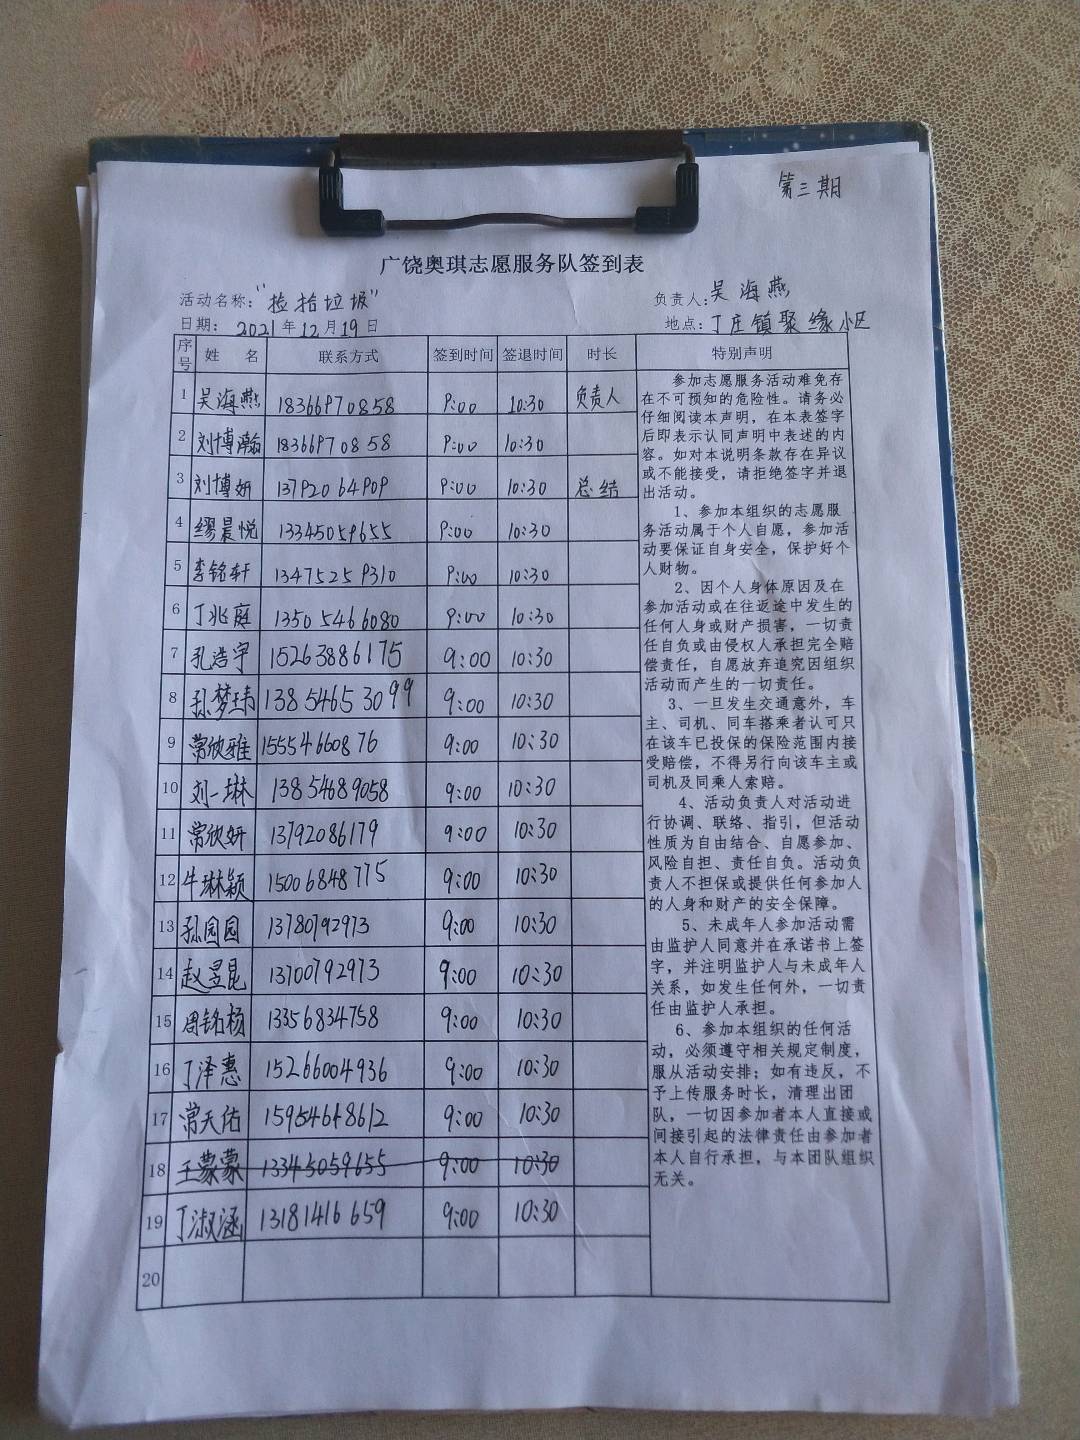 第三期
广饶奥琪志愿服务队签到表
活动名称:"捡拾垃圾" 负责人:吴海燕
日期: 2021年12月19日 地点:丁庄镇聚缘小区
序号 姓 名 联系方式 签到时间 签退时间 时长 特别声明
1 吴海燕 18366970858 9:00 10:30 负责人
2 刘博瀚 18366970858 9:00 10:30
3 刘博妍 13792064909 9:00 10:30 总结
4 缪晨悦 13345059655 9:00 10:30
5 李铭轩 13475259310 9:00 10:30
6 丁兆庭 13505466080 9:00 10:30
7 孔浩宇 15263886175 9:00 10:30
8 孙梦玮 13854653099 9:00 10:30
9 常欣雅 15554660876 9:00 10:30
10 刘一琳 13854689058 9:00 10:30
11 常欣妍 13792086179 9:00 10:30
12 牛琳颖 15006848775 9:00 10:30
13 孙园园 13780792973 9:00 10:30
14 赵昱昆 13700792973 9:00 10:30
15 周铭杨 13356834758 9:00 10:30
16 丁泽惠 15266004936 9:00 10:30
17 常天佑 15954648612 9:00 10:30
18 王蒙蒙 13345059655 9:00 10:30
19 丁淑涵 13181416659 9:00 10:30
20
参加志愿服务活动难免存
在不可预知的危险性。请务必
仔细阅读本声明，在本表签字
后即表示认同声明中表述的内
容。如对本说明条款存在异议
或不能接受，请拒绝签字并退
出活动。
1、参加本组织的志愿服
务活动属于个人自愿，参加活
动要保证自身安全，保护好个
人财物。
2、因个人身体原因及在
参加活动或在往返途中发生的
任何人身或财产损害，一切责
任自负或由侵权人承担完全赔
偿责任，自愿放弃追究因组织
活动而产生的一切责任。
3、一旦发生交通意外，车
主、司机、同车搭乘者认可只
在该车已投保的保险范围内接
受赔偿，不得另行向该车主或
司机及同乘人索赔。
4、活动负责人对活动进
行协调、联络、指引，但活动
性质为自由结合、自愿参加、
风险自担、责任自负。活动负
责人不担保或提供任何参加人
的人身和财产的安全保障。
5、未成年人参加活动需
由监护人同意并在承诺书上签
字，并注明监护人与未成年人
关系，如发生任何外，一切责
任由监护人承担。
6、参加本组织的任何活
动，必须遵守相关规定制度，
服从活动安排；如有违反，不
予上传服务时长，清理出团
队，一切因参加者本人直接或
间接引起的法律责任由参加者
本人自行承担，与本团队组织
无关。